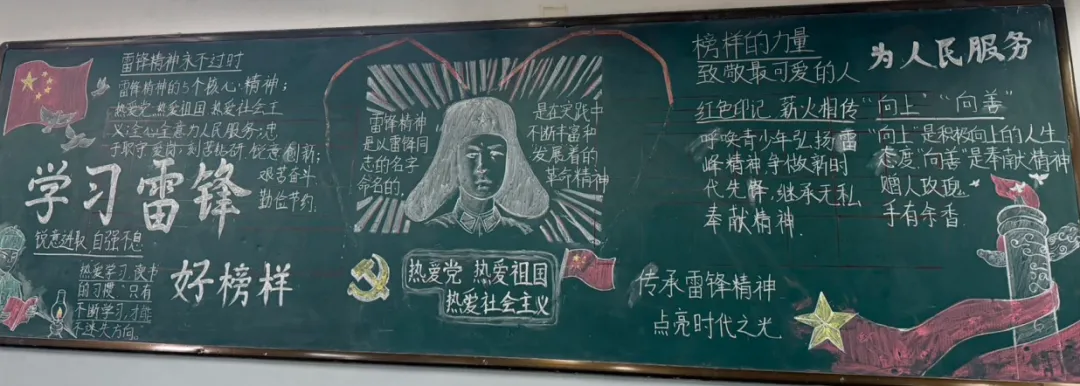 雷锋精神永不过时
雷锋精神的5个核心精神；
热爱党、热爱祖国、热爱社会主
义；全心全意为人民服务；忠
于职守、爱岗；刻苦钻研、锐意创新；
艰苦奋斗
勤俭节约.
学习雷锋
锐意进取 自强不息
热爱学习、读书
的习惯，只有
不断学习，才能
不迷失方向。
好榜样
"雷锋精神"
是以雷锋同
志的名字
命名的，
是在实践中
不断丰富和
发展着的
革命精神
热爱党 热爱祖国
热爱社会主义
榜样的力量
致敬最可爱的人
红色印记 薪火相传
呼唤青少年弘扬雷
峰精神，争做新时
代先锋，继承无私
奉献精神.
传承雷锋精神
点亮时代之光
为人民服务
"向上""向善"
"向上"是积极向上的人生
态度"向善"是奉献精神
赠人玫瑰
手有余香.